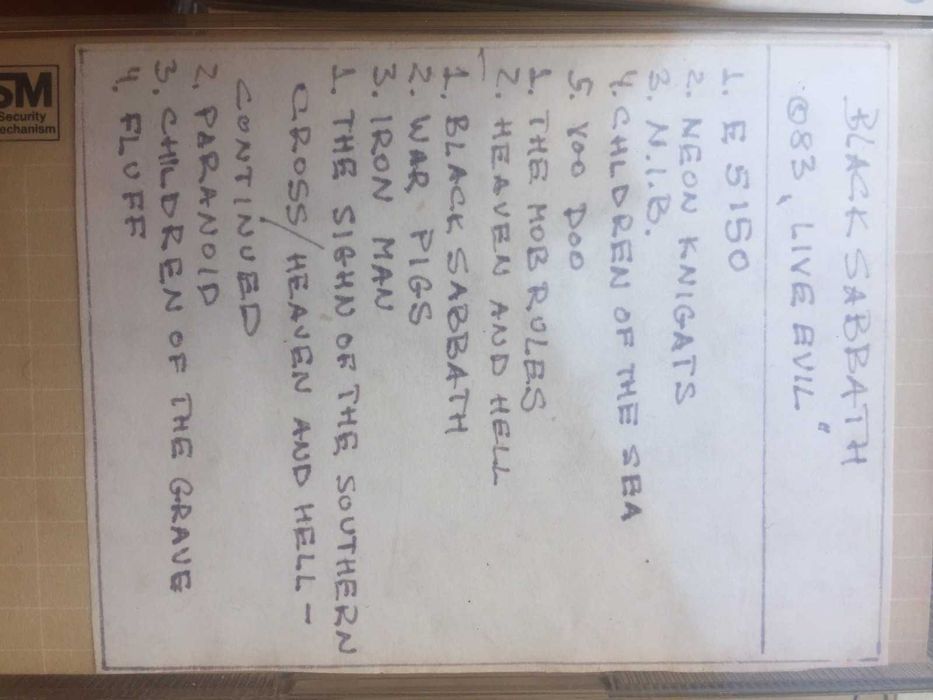 BLACK SABBATH
@83 „LIVE EVIL"
1. E 5150
2. NEON KNIGATS
3. N.I.B.
4. CHLDREN OF THE SEA
5. VOO DOO
1. THE MOB RULES
2. HEAVEN AND HELL
1. BLACK SABBATH
2. WAR PIGS
3. IRON MAN
1. THE SIGHN OF THE SOUTHERN
CROSS/HEAVEN AND HELL –
CONTINUED
2. PARANOID
3. CHILDREN OF THE GRAVE
4. FLUFF
SM
Security
echanism